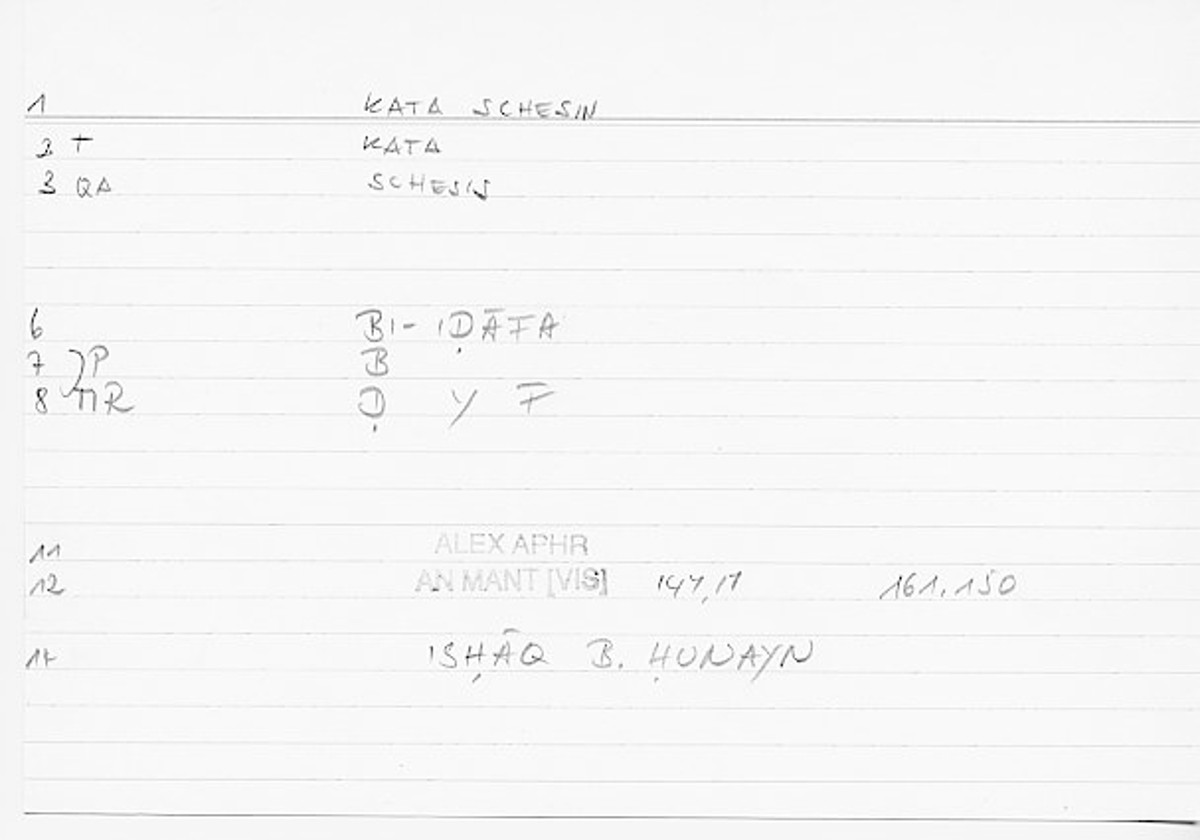 1 KATA SCHESIN
3 T KATA
3 QA SCHESIS
6 BI- IḌĀFA
7 P B
8 MR Ḍ Y F
11 ALEX APHR
12 AN MANT [VIS] 147,17 161.150
14 ISḤĀQ B. ḤUNAYN